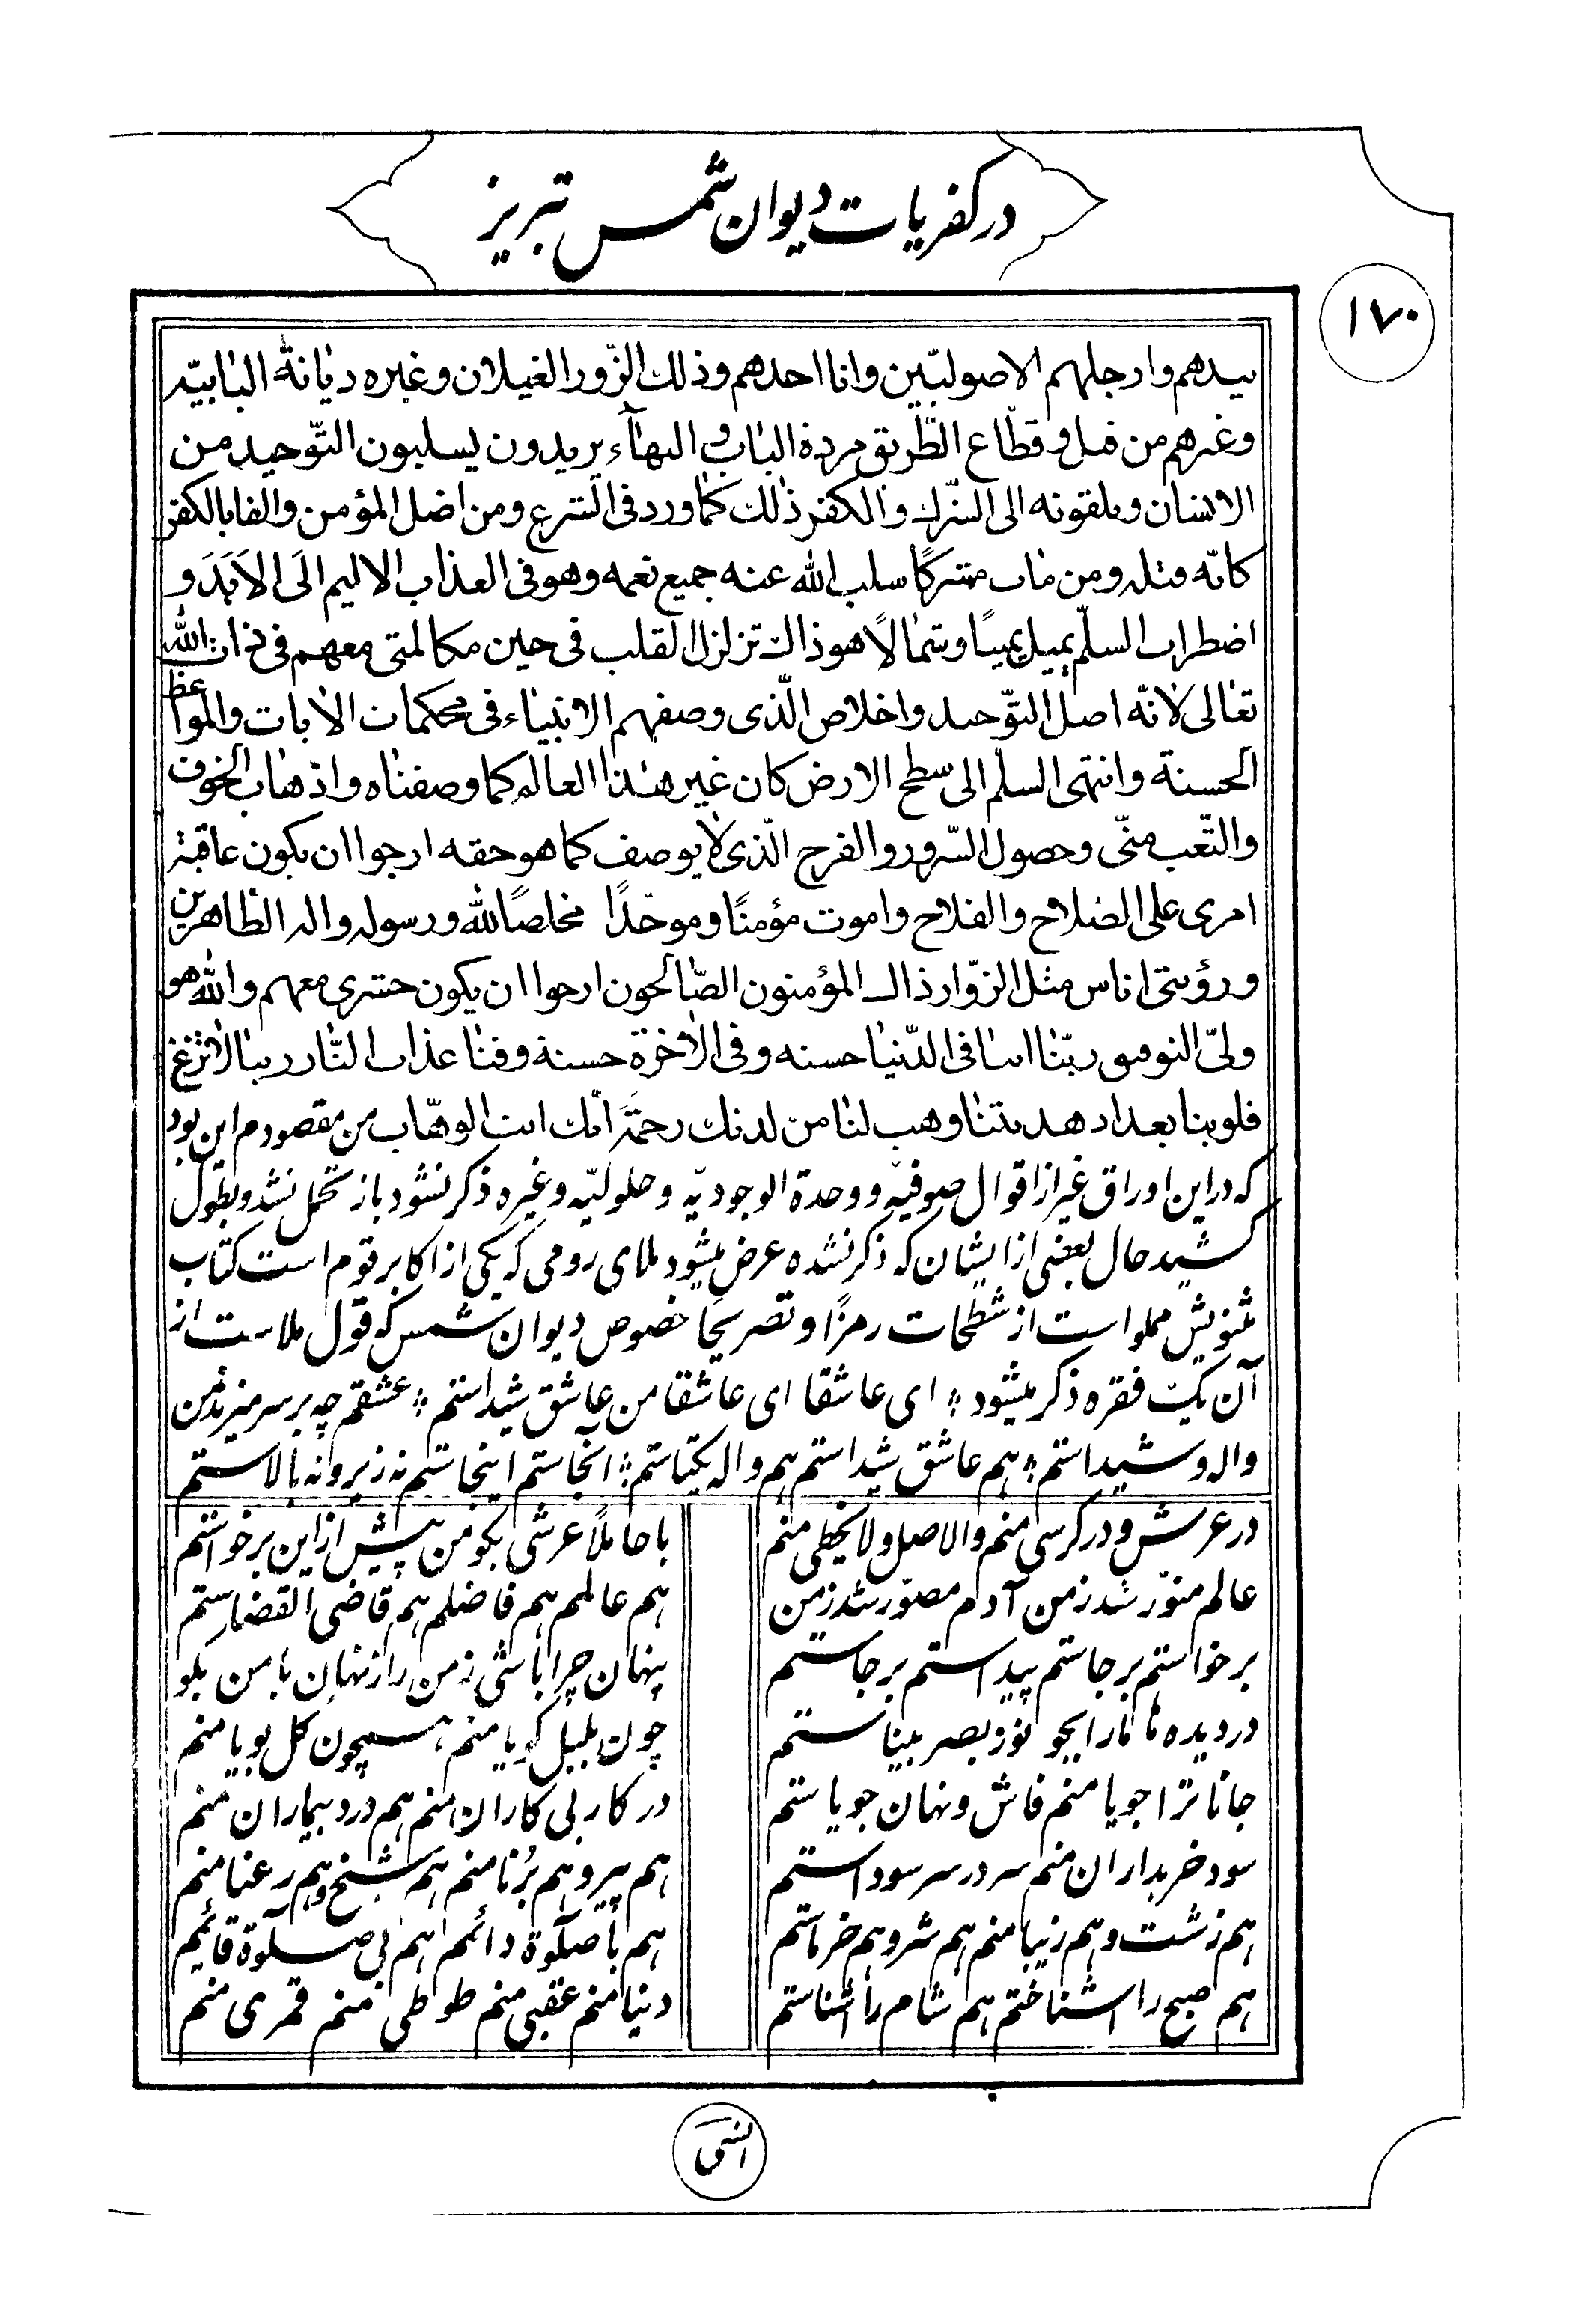 در کفریات دیوان شمس تبریز
۱۷۰
بیدهم وارجلهم الاصولیّین وانا احدهم وذلك الزّور الغیلان وغیره دیانة البابیّه
وغیرهم من قبل وقطّاع الطّریق مردة الباب والبهآء یریدون یسلبون التّوحید من
الانسان ویلقونه الی الشّرك والکفر ذلك کما ورد فی الشرع ومن اضل المؤمن والقا بالکفر
کانّه قتله ومن مات مشرکًا سلب الله عنه جمیع نعمه وهو فی العذاب الالیم الَی الاَبَدَ و
اضطراب السلّم یمیل یمینًا وشمالًا هو ذاك تزلزل القلب فی حین مکالمتی معهم فی ذات الله
تعالی لانّه اصل التوّحید واخلاص الّذی وصفهم الانبیاء فی محکمات الایات والمواعظ
الحسنة وانتهی السلّم الی سطح الارض کان غیر هذا العالم کما وصفناه واذهاب الخوف
والتّعب منّی وحصول السّرور والفرح الّذی لا یوصف کما هو حقه ارجوا ان یکون عاقبة
امری علی الصّلاح والفلاح واموت مؤمنًا وموحّدًا مخلصًا لله ورسوله واله الطّاهرین
ورؤیتی اناس مثل الزوّار ذاك المؤمنون الصّالحون ارجوا ان یکون حشری معهم والله هو
ولیّ التوفیق ربّنا اتنا فی الدّنیا حسنه وفی الاخرة حسنة وقنا عذاب النّار ربنا لاتزغ
قلوبنا بعد اذ هدیتنا وهب لنا من لدنك رحمَة انّك انت الوهّاب من مقصودم این بود
که در این اوراق غیر از اقوال صوفیّه و وحدة الوجودیّه و حلولیّه و غیره ذکر نشود باز تحمل نشد و بطول
کشید حال بعضی از ایشان که ذکر نشده عرض میشود ملای رومی که یکی از اکابر قوم است کتاب
مثنویش مملو است از شطحات رمزًا و تصریحًا خصوص دیوان شمس که قول ملاست از
آن یک فقره ذکر میشود ؛ ای عاشقا ای عاشقا من عاشق شیداستم ؛ عشقم چه بر سر میزند من
واله و شیداستم ؛ هم عاشق شیداستم هم واله یکتاستم ؛ آنجاستم اینجاستم نه زیر و نه بالاستم
در عرش و در کرسی منم والاصل ولا یخطی منم	با حاملًا عرشی بکو من پیش از این برخواستم
عالم منوّر شد ز من آدم مصوّر شد ز من	هم عالمم هم فاضلم هم قاضی القضاستم
برخواستم برجاستم پیداستم برجاستم	پنهان چرا باشی ز من راز نهان با من بکو
در دیده نا ما را بجو نور بصر بیناستم	چون بلبل کویا منم همچون کل بویا منم
جانا ترا جویا منم فاش و نهان جویاستم	در کار بی کاران منم هم درد بیماران منم
سود خریداران منم سر در سر سوداستم	هم پیر و هم بُرنا منم هم شیخ و هم رعنا منم
هم زشت و هم زیبا منم هم شر و هم خرماستم	هم با صلوة دائمم هم بی صلوة قائمیم
هم صبح را اشناختم هم شام را اشناستم	دنیا منم عقبی منم طوطی منم قمری منم